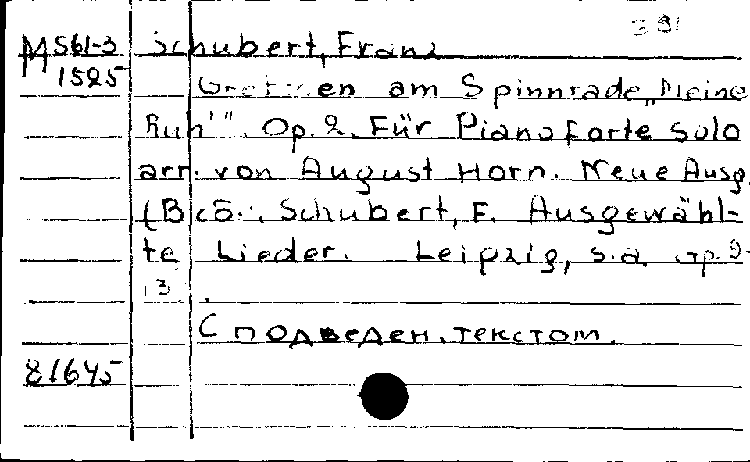 391
М 561-3 Schubert, Franz
1525
Gretchen am Spinnrade „Meine
Ruh'". Op. 2. Für Pianoforte solo
arr. von August Horn. Neue Ausg.
(В сб.: Schubert, F. Ausgewähl-
te Lieder. Leipzig, s.a. стр. 9-
13.
С подведен. текстом.
81645